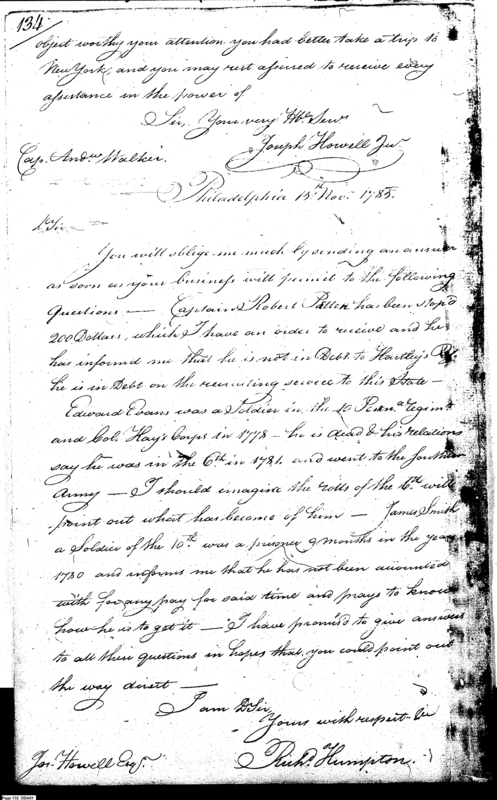 134
object worthy your attention you had better take a trip to
New York, and you may rest assured to receive every
assistance in the power of
Sir, Your very Hble Servt
Joseph Howell Junr
Cap. Andw Walker.
Philadelphia 15th Novr 1785.
Dr Sir
You will oblige me much by sending an answer
as soon as your business will permit to the following
Questions — Captain Robert Patton has been stop'd
200 Dollars, which I have an order to receive and he
has informed me that he is not in Debt to Hartley's Rt.
he is in Debt on the recruiting service to this State —
Edward Evans was a Soldier in the 10 Penna regimt
and Col. Hay's Corps in 1778 — he is dead & his relations
say he was in the 6th in 1781. and went to the southern
Army — I should imagine the rolls of the 6th will
point out what has become of him — James Smith
a Soldier of the 10th was a prisoner 9 months in the year
1780 and informs me that he has not been accounted
with for any pay for said time and prays to know
how he is to get it — I have promis'd to give answers
to all these questions in hopes that you could point out
the way direct —
I am D Sir
Yours with respect &c
Jos. Howell Esqr.
Richd. Humpton.
Page 132